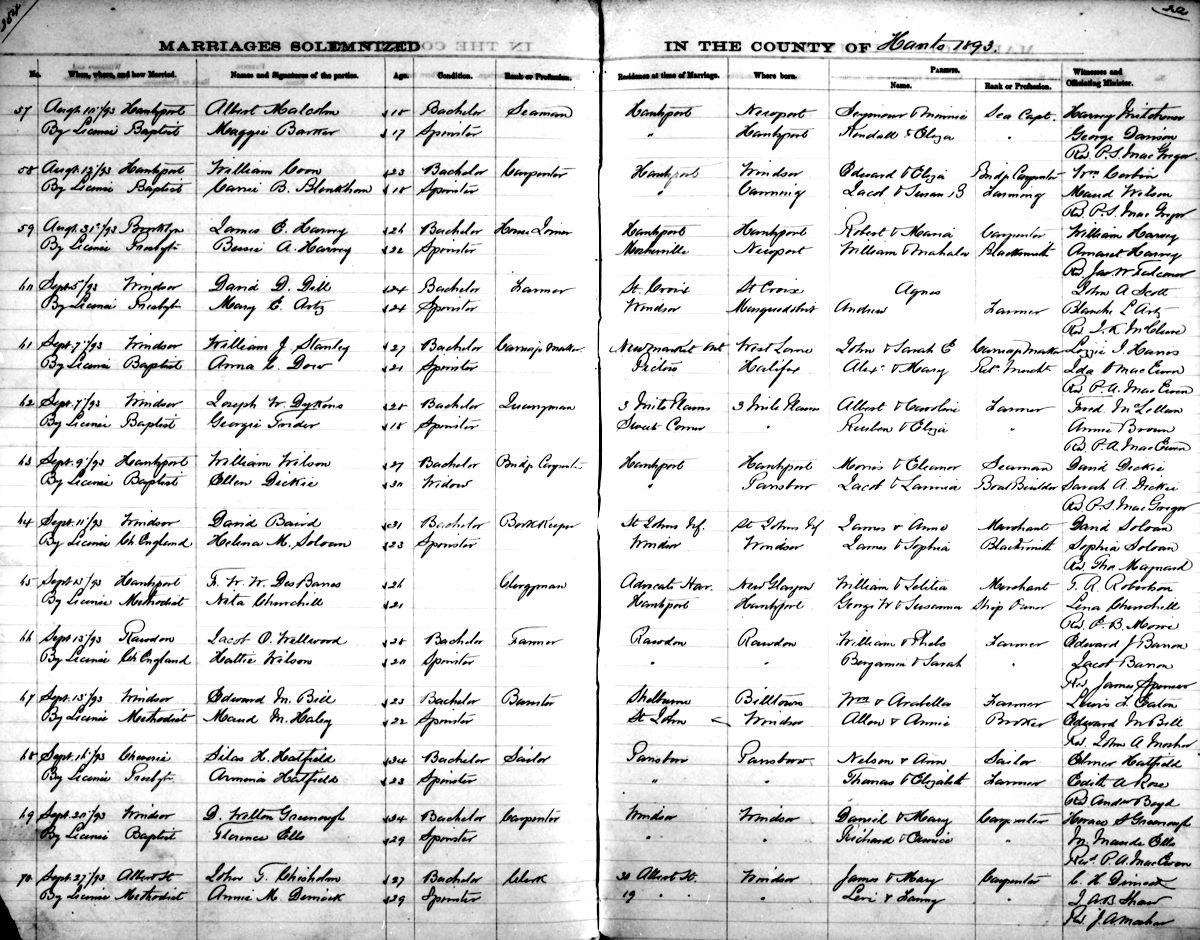 254
MARRIAGES SOLEMNIZED IN THE COUNTY OF Hants 1893.
No. When, where, and how Married. Names and Signatures of the parties. Age. Condition. Rank or Profession. Residence at time of Marriage. Where born. PARENTS. Name. Rank or Profession. Witnesses and Officiating Minister.
57 Augt. 10/93 Hantsport Albert Malcolm 18 Bachelor Seaman Hantsport Newport Seymour & Minnie Sea Capt. Harvey
By License Baptist Maggie Barker 17 Spinster " Hantsport Kendall & Eliza " George Davison
Rev P. S. MacGregor
58 Augt. 12/93 Hantsport William Coon 23 Bachelor Carpenter Hantsport Windsor Edward & Eliza Bridge Carpenter Wm Corbin
By License Baptist Carrie B. Blenkhorn 18 Spinster " Canning Jacob & Susan B Farming Maud Wilson
Rev P. S. MacGregor
59 Augt. 31/93 Brooklyn James E. Harvey 26 Bachelor House Joiner Hantsport Hantsport Robert & Maria Carpenter William Harvey
By License Presbyt Bessie A. Harvey 22 Spinster Mosherville Newport William & Mahala Blacksmith Harvey
Rev Jas W Falconer
60 Sept 5/93 Windsor David D. Dill 24 Bachelor Farmer St. Croix St Croix Agnes John A Scott
By License Presbyt Mary E. Artz 24 Spinster Windsor Musquodoboit Andrew Farmer Blanche L Artz
Rev
61 Sept. 7/93 Windsor William J. Stanley 27 Bachelor Carriage Maker Newmarket Ont West Lorne John & Sarah E Carriage Maker Lizzie J. Hanes
By License Baptist Anna E. Dow 21 Spinster Pictou Halifax Alexr & Mary Ret. Mercht Ida MacEwen
Rev P. A. MacEwen
62 Sept. 7/93 Windsor Joseph W. Dykens 28 Bachelor Quarryman 3 Mile Plains 3 Mile Plains Albert & Caroline Farmer Fred McLellan
By License Baptist Georgie Snider 18 Spinster Sweets Corner " Reuben & Eliza " Annie Brown
Rev P. A. MacEwen
63 Sept. 9/93 Hantsport William Wilson 27 Bachelor Bridge Carpenter Hantsport Hantsport Morris & Eleanor Seaman David Dickie
By License Baptist Ellen Dickie 30 Widow " Parrsboro Jacob & Boat Builder Sarah A. Dickie
Rev P. S. MacGregor
64 Sept. 11/93 Windsor David Baird 31 Bachelor Bookkeeper St Johns Nf. St Johns Nf James & Anne Merchant David Soloan
By License Ch England Helena M. Soloan 23 Spinster Windsor Windsor James & Sophia Blacksmith Sophia Soloan
Rev Thos Maynard
65 Sept 13/93 Hantsport F. W. W. DesBarres 26 Clergyman Advocate Har. New Glasgow William & Letitia Merchant T. R. Robertson
By License Methodist Nita Churchill 21 Hantsport Hantsport George W & Susanna Ship Owner Lena Churchill
Rev
66 Sept 13/93 Rawdon Jacob O. Wellwood 28 Bachelor Farmer Rawdon Rawdon William & Farmer Edward J Barron
By License Ch England Hattie Wilson 20 Spinster " " Benjamin & Sarah " Jacob Barron
Rev James Spencer
67 Sept. 13/93 Windsor Edward M. Bill 23 Bachelor Barrister Shelburne Billtown Wm & Arabella Farmer Lewis F. Eaton
By License Methodist Maud M. Haley 22 Spinster St John Windsor Allen & Annie Broker Edward M Bill
Rev. John A Mosher
68 Sept. 16/93 Cheverie Silas H. Hatfield 34 Bachelor Sailor Parrsboro Parrsboro Nelson & Ann Sailor Elmer Hatfield
By License Presbyt Armenia Hatfield 23 Spinster " " Thomas & Elizabeth Farmer Edith A Rose
Rev Andw Boyd
69 Sept. 20/93 Windsor D. Walton Greenough 34 Bachelor Carpenter Windsor Windsor Daniel & Mary Carpenter Horace S Greenough
By License Baptist Florence Ells 29 Spinster " " Richard & Eunice " M. Maude Ells
Revd. P. A. MacEwen
70 Sept. 27/93 Albert St John T. Chisholm 27 Bachelor Clerk 30 Albert St. Windsor James & Mary Carpenter C. H. Dimock
By License Methodist Annie M. Dimock 29 Spinster 19 " " Levi & Fanny " Shaw
Rev J. A. Mosher